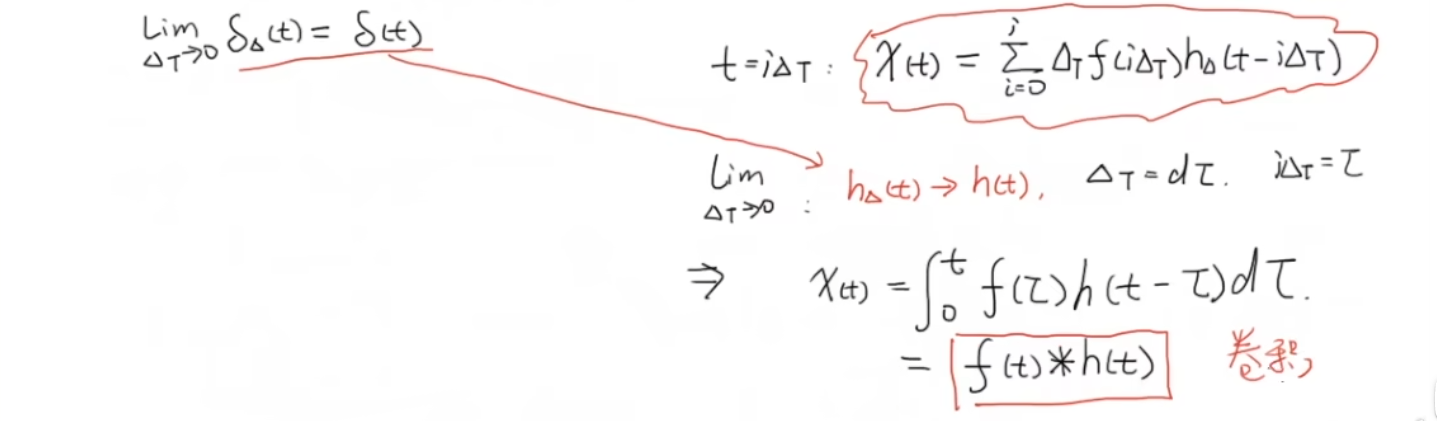 Lim ΔT→0 δΔ(t) = δ(t)
t = iΔT : x(t) = Σ_{i=0}^{i} ΔT f(iΔT) hΔ(t - iΔT)
Lim ΔT→0 : hΔ(t) → h(t), ΔT = dτ. iΔT = τ
⇒ x(t) = ∫_0^t f(τ) h(t - τ) dτ.
= f(t) * h(t) 卷积